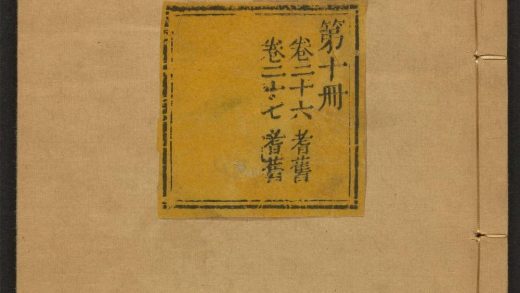 第十冊
卷二十六 耆舊
卷二十七 耆舊